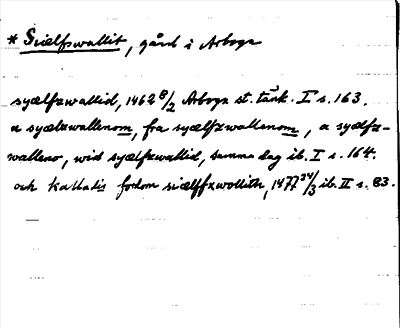 * Siælfswallit, gård i Arboga
syælfzwallid, 1462 8/2 Arboga st. tänk. I s. 163.
a syælzwallenom, fra syælfzwallenom, a syælfz-
walleno, wid syælfzwallid, samma dag ib. I s. 164.
och kalladis fordom siælffzwollith, 1477 24/3 ib. II s. 83.